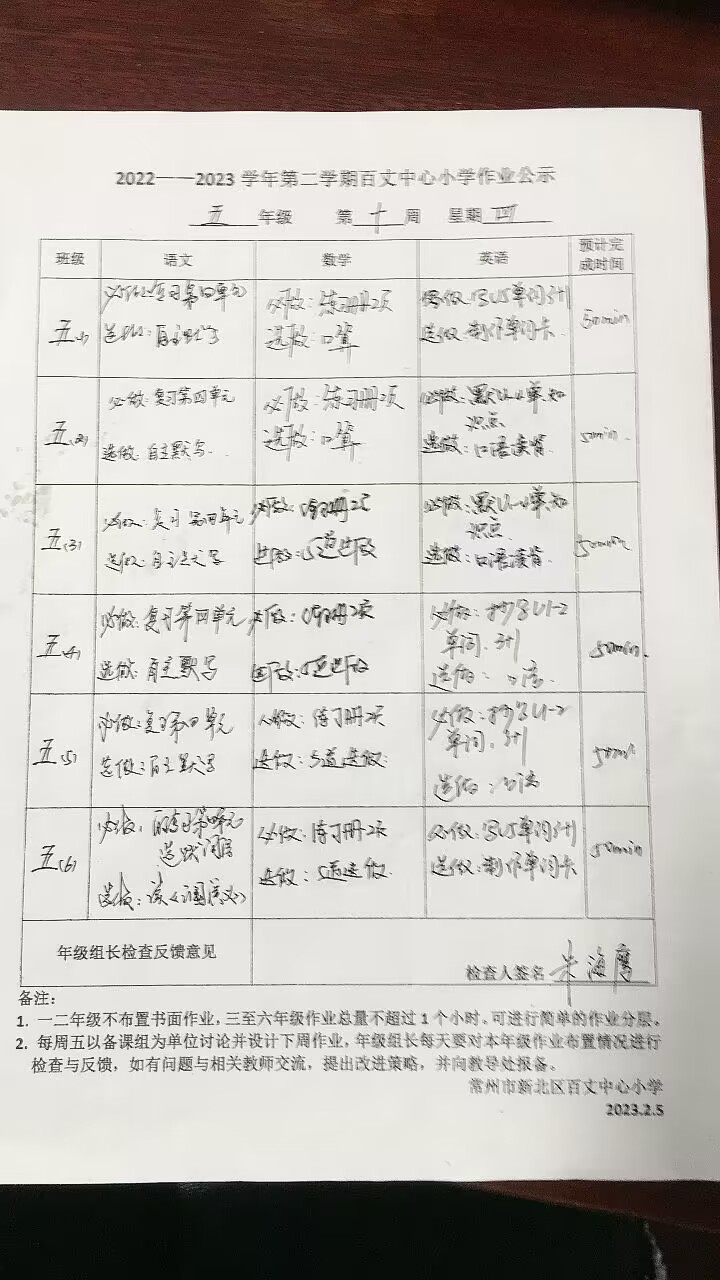 2022——2023 学年第二学期百丈中心小学作业公示
五 年级 第 十 周 星期 四
班级 语文 数学 英语 预计完成时间
五(1)
必做:复习第四单元
选做:自主默写
必做:练习册2项
选做:口算
必做:写U5单词
选做:制作单词卡
50min
五(2)
必做:复习第四单元
选做:自主默写
必做:练习册2项
选做:口算
必做:默 单知
识点
选做:口语读背
50min
五(3)
必做:复习第四单元
选做:自主默写
必做:练习册2页
选做:5道选做
必做:默 单知
识点
选做:口语读背
50min
五(4)
必做:复习第四单元
选做:自主默写
必做:练习册2项
选做:5道选做
必做:抄写U1-2
单词
选做:口语
50min
五(5)
必做:复习第四单元
选做:自主默写
必做:练习册2页
选做:5道选做
必做:抄写U1-2
单词
选做:口语
50min
五(6)
必做: 第四单元
选做:读
必做:练习册2页
选做:5道选做
必做:写U5单词
选做:制作单词卡
50min
年级组长检查反馈意见
检查人签名 朱海鹰
备注:
1. 一二年级不布置书面作业,三至六年级作业总量不超过 1 个小时。可进行简单的作业分层。
2. 每周五以备课组为单位讨论并设计下周作业,年级组长每天要对本年级作业布置情况进行
检查与反馈,如有问题与相关教师交流,提出改进策略,并向教导处报备。
常州市新北区百丈中心小学
2023.2.5